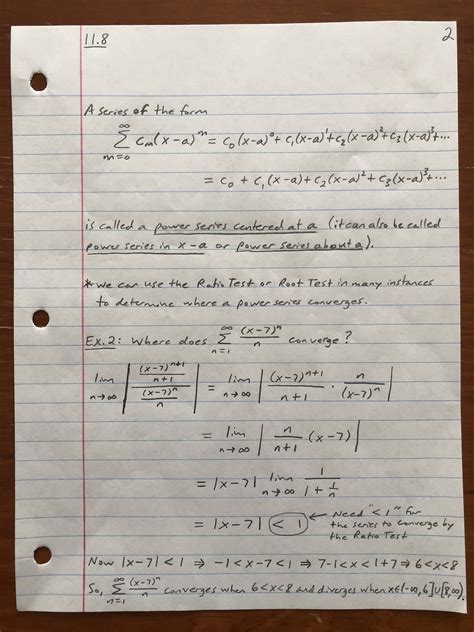 11.8 2
A series of the form
∞
Σ cₘ(x-a)ᵐ = c₀(x-a)⁰ + c₁(x-a)¹ + c₂(x-a)² + c₃(x-a)³ + ⋯
m=0
= c₀ + c₁(x-a) + c₂(x-a)² + c₃(x-a)³ + ⋯
is called a power series centered at a (it can also be called
power series in x-a or power series about a).
*we can use the Ratio Test or Root Test in many instances
to determine where a power series converges.
Ex.2: Where does ∞Σn=1 (x-7)ⁿ/n converge?
lim n→∞ | ((x-7)ⁿ⁺¹/(n+1)) / ((x-7)ⁿ/n) | = lim n→∞ | (x-7)ⁿ⁺¹/(n+1) · n/(x-7)ⁿ |
= lim n→∞ | n/(n+1) (x-7) |
= |x-7| lim n→∞ 1/(1+1/n)
= |x-7| < 1 ← Need "< 1" for
the series to converge by
the Ratio Test
Now |x-7|<1 ⇒ -1<x-7<1 ⇒ 7-1<x<1+7 ⇒ 6<x<8
So, ∞Σn=1 (x-7)ⁿ/n converges when 6<x<8 and diverges when x∈(-∞,6]∪[8,∞).